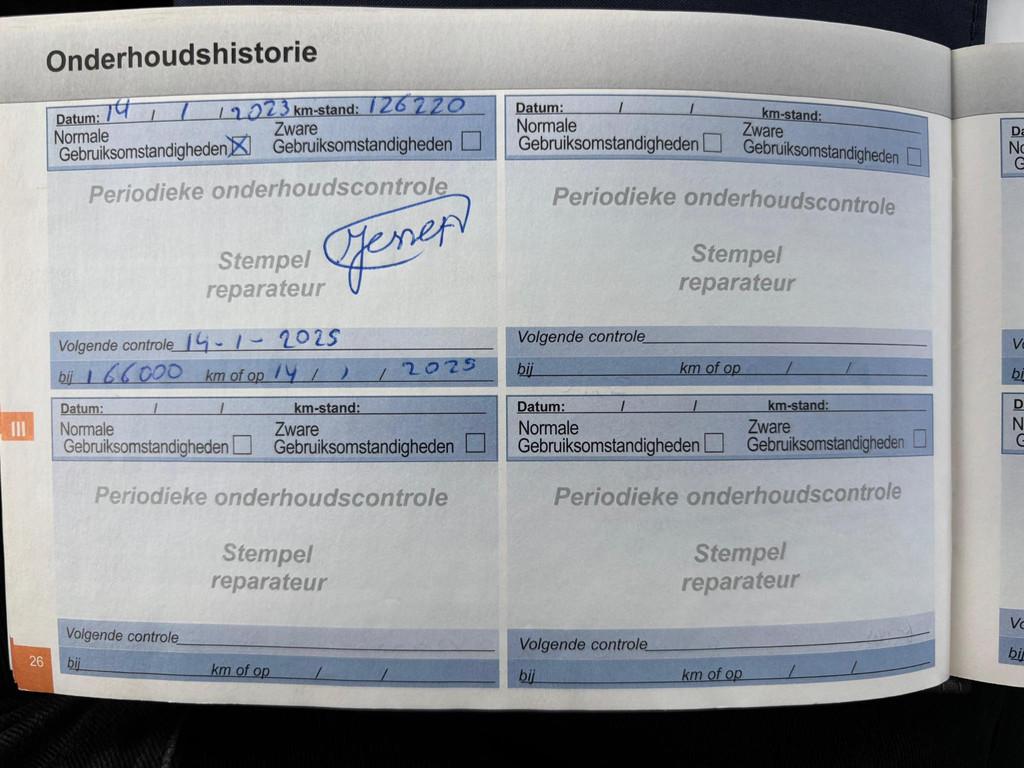 Onderhoudshistorie
Datum: 14 / 1 / 2023 km-stand: 126220
Normale Gebruiksomstandigheden Zware Gebruiksomstandigheden
Periodieke onderhoudscontrole
Stempel
reparateur
Volgende controle 14-1-2025
bij 166000 km of op 14 / 1 / 2025
Datum: / / km-stand:
Normale Gebruiksomstandigheden Zware Gebruiksomstandigheden
Periodieke onderhoudscontrole
Stempel
reparateur
Volgende controle
bij km of op / /
III
Datum: / / km-stand:
Normale Gebruiksomstandigheden Zware Gebruiksomstandigheden
Periodieke onderhoudscontrole
Stempel
reparateur
Volgende controle
bij km of op / /
Datum: / / km-stand:
Normale Gebruiksomstandigheden Zware Gebruiksomstandigheden
Periodieke onderhoudscontrole
Stempel
reparateur
Volgende controle
bij km of op / /
26